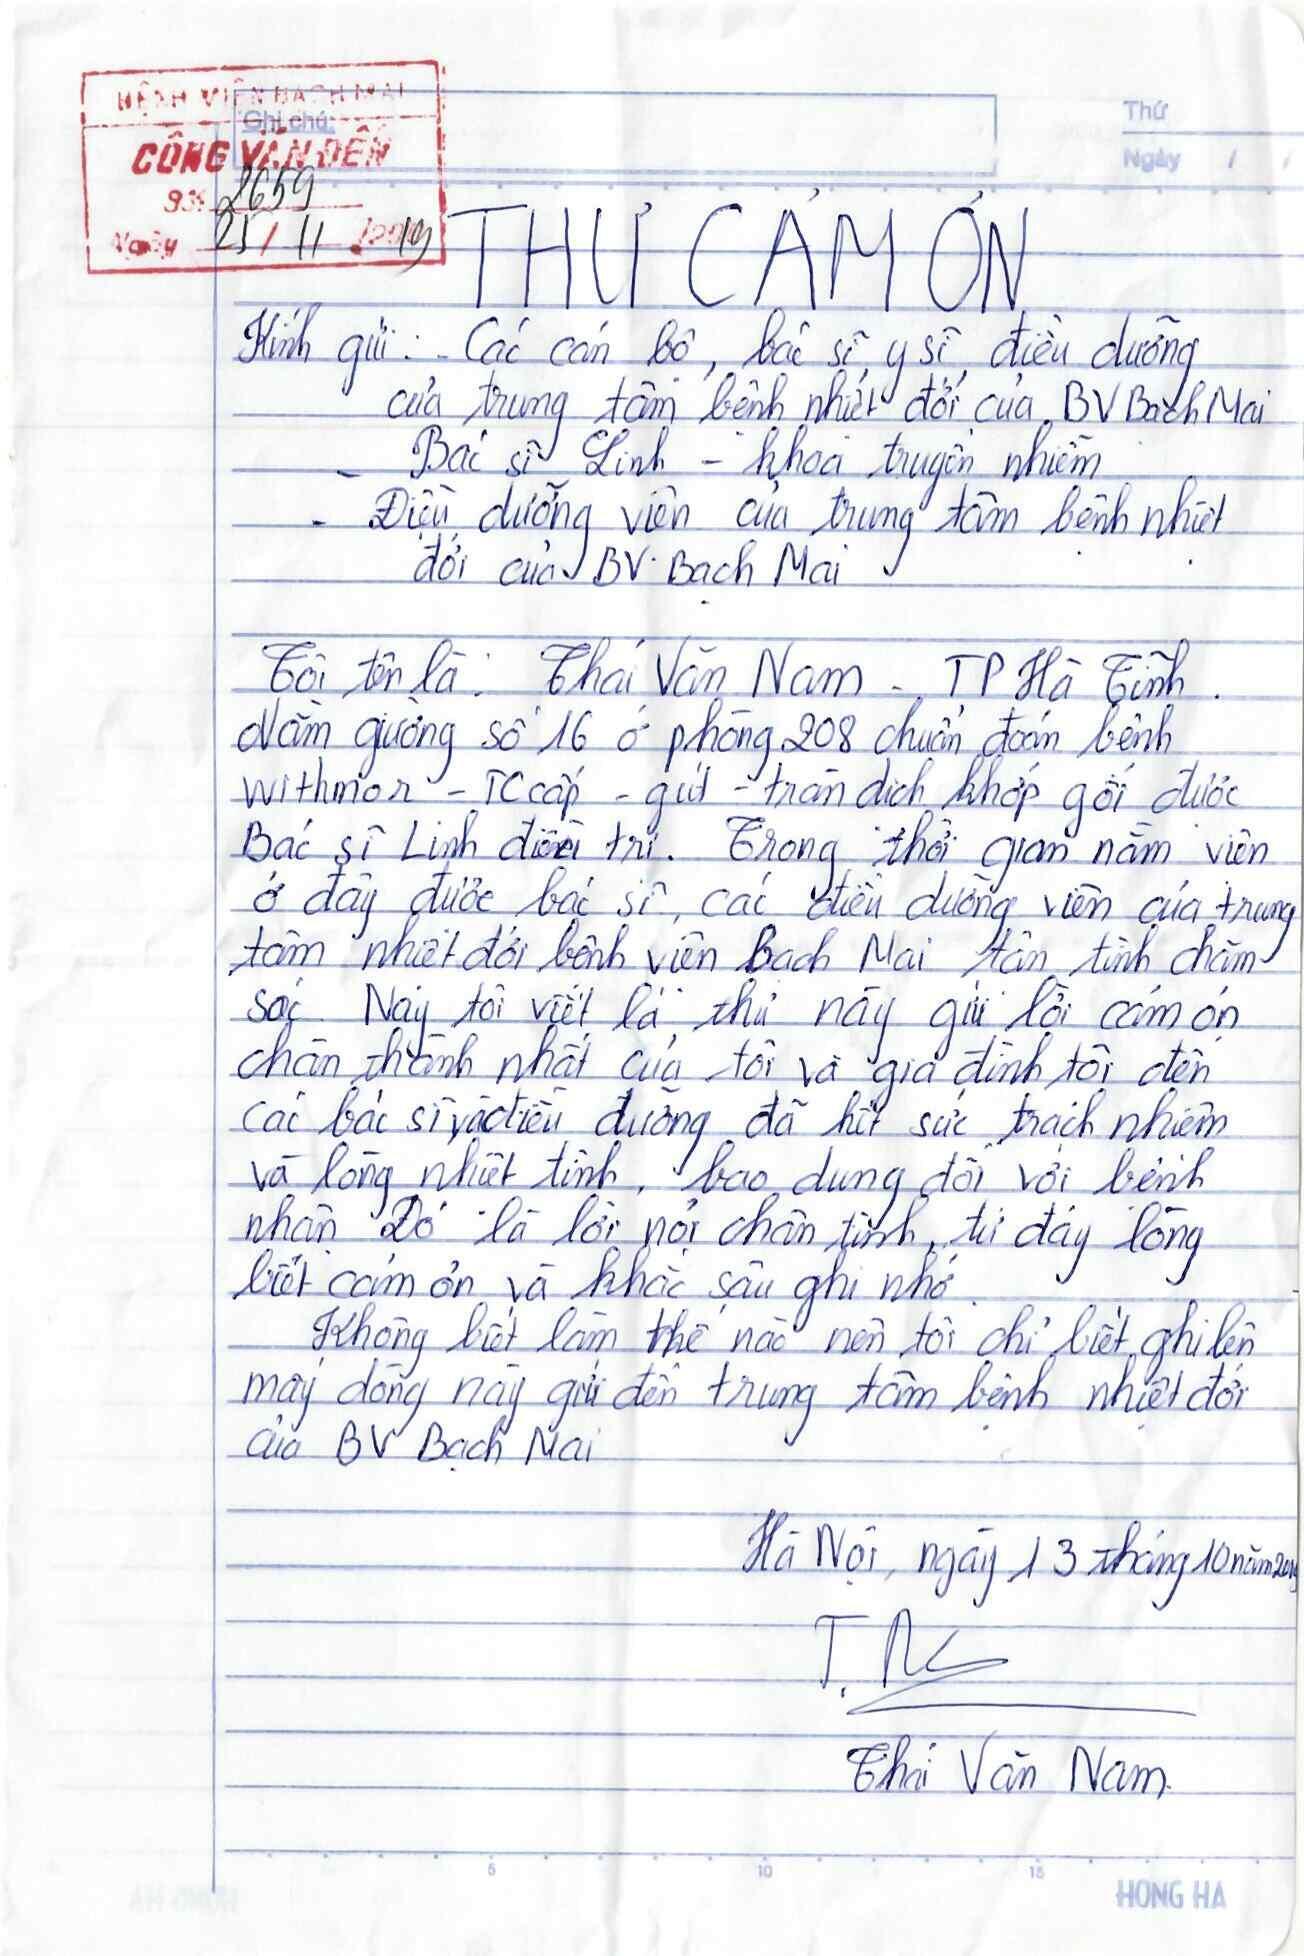 BỆNH VIỆN BẠCH MAI
Ghi chú:
CÔNG VĂN ĐẾN
2659
Ngày 25 / 11 /2019
Thứ
Ngày / /
THƯ CẢM ƠN
Kính gửi: - Các cán bộ, bác sĩ, y sĩ, điều dưỡng
của trung tâm bệnh nhiệt đới của BV Bạch Mai
- Bác sĩ Linh - khoa truyền nhiễm
- Điều dưỡng viên của trung tâm bệnh nhiệt
đới của BV Bạch Mai
Tôi tên là: Thái Văn Nam - TP Hà Tĩnh.
Nằm giường số 16 ở phòng 208 chuẩn đoán bệnh
withmor - TC cấp - gút - tràn dịch khớp gối được
Bác sĩ Linh điều trị. Trong thời gian nằm viện
ở đây được bác sĩ, các điều dưỡng viên của trung
tâm nhiệt đới bệnh viện Bạch Mai tận tình chăm
sóc. Nay tôi viết lá thư này gửi lời cám ơn
chân thành nhất của tôi và gia đình tôi đến
các bác sĩ và điều dưỡng đã hết sức trách nhiệm
và lòng nhiệt tình, bao dung đối với bệnh
nhân. Đó là lời nói chân tình, từ đáy lòng
biết cám ơn và khắc sâu ghi nhớ.
Không biết làm thế nào nên tôi chỉ biết ghi lên
mấy dòng này gửi đến trung tâm bệnh nhiệt đới
của BV Bạch Mai
Hà Nội, ngày 13 tháng 10 năm 2019
Thái Văn Nam
5 10 15
HONG HA